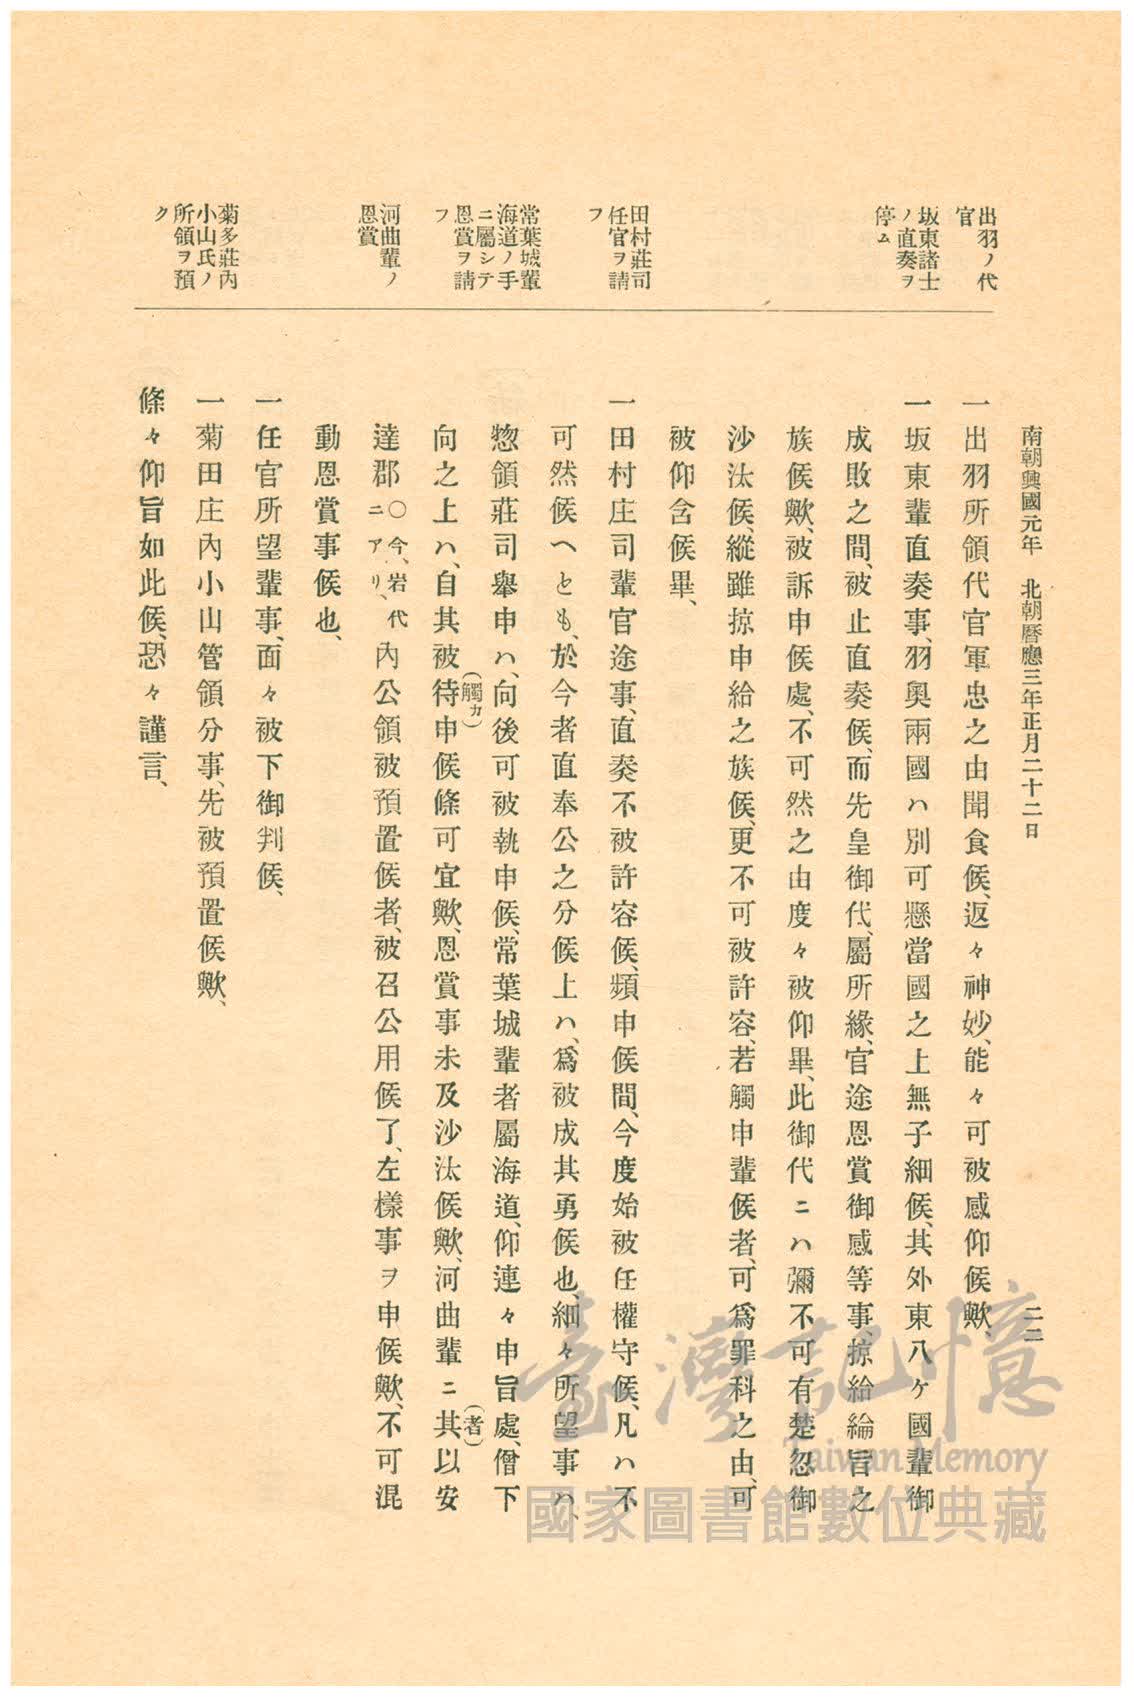 南朝興國元年　北朝曆應三年正月二十二日
二二
出羽ノ代
官
坂東諸士
ノ直奏ヲ
停ム
田村莊司
任官ヲ請
フ
常葉城輩
海道ノ手
ニ屬シテ
恩賞ヲ請
フ
河曲輩ノ
恩賞
菊多莊內
小山氏ノ
所領ヲ預
ク
一出羽所領代官軍忠之由聞食候、返々神妙、能々可被感仰候歟、
一坂東輩直奏事、羽奧兩國ハ別可懸當國之上無子細候、其外東八ケ國輩御
成敗之間、被止直奏候、而先皇御代、屬所緣、官途恩賞御感等事掠給綸旨之
族候歟、被訴申候處、不可然之由度々被仰畢、此御代ニハ彌不可有楚忽御
沙汰候、縱雖掠申給之族候、更不可被許容、若觸申輩候者、可爲罪科之由、可
被仰含候畢、
一田村庄司輩官途事、直奏不被許容候、頻申候間、今度始被任權守候、凡ハ不
可然候へとも、於今者直奉公之分候上ハ、爲被成其勇候也、細々所望事ハ、
惣領莊司舉申ハ、向後可被執申候、常葉城輩者屬海道、仰連々申旨處、僧下
向之上ハ、自其被待(觸カ)申候條可宜歟、恩賞事未及沙汰候歟、河曲輩ニ其(者)以安
達郡○今、岩代ニアリ、內公領被預置候者、被召公用候了、左樣事ヲ申候歟、不可混
動恩賞事候也、
一任官所望輩事、面々被下御判候、
一菊田庄內小山管領分事、先被預置候歟、
條々仰旨如此候、恐々謹言、
臺灣記憶
Taiwan Memory
國家圖書館數位典藏